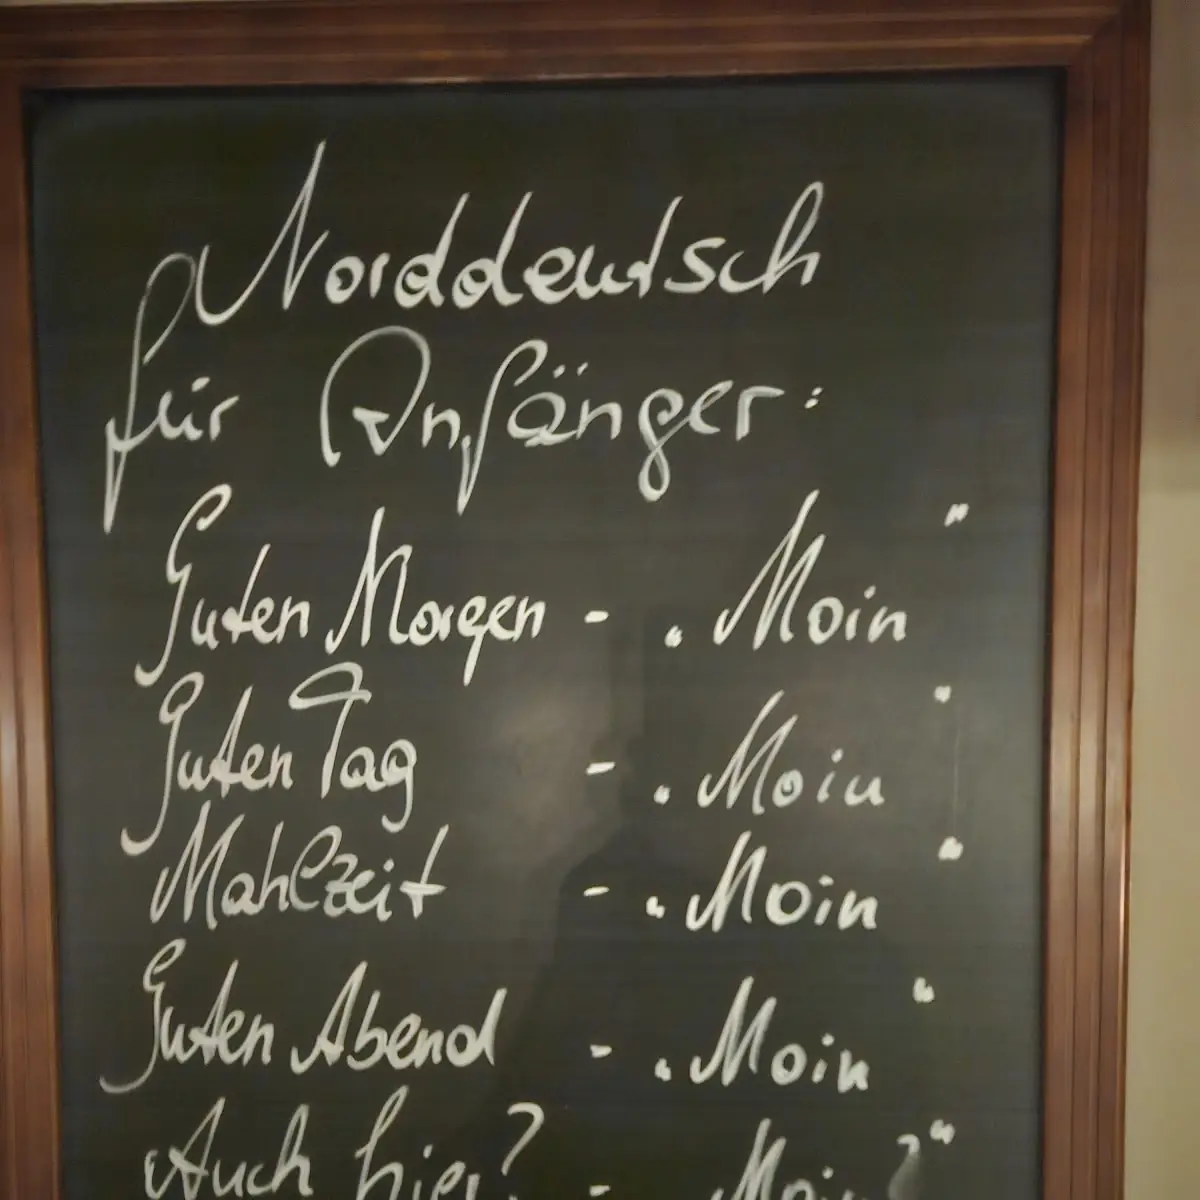 Norddeutsch
für Anfänger:
Guten Morgen - „Moin"
Guten Tag - „Moin"
Mahlzeit - „Moin"
Guten Abend - „Moin"
Auch hier? - „Moin?"